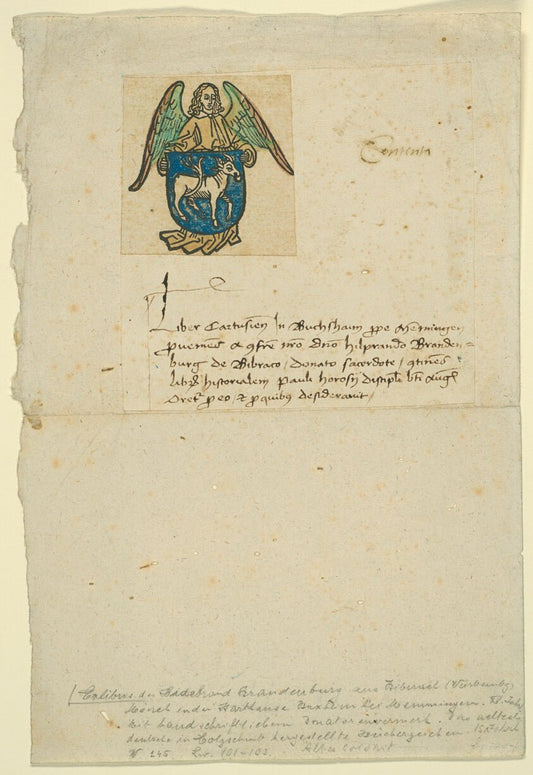 Contenta
Liber Cartusien̄ In Buchshaim ꝓpe Mēmingen
ꝓueniēs a ꝯfrē nr̄o dn̄o hilprando Branden=
burg de Bibraco / Donato sacerdote / ꝯtinēs
libꝝ historialem Pauli horosij discipli bt̄i Aug.
Oret̄ ꝓ eo / et ꝓ quibus desiderauit /
Exlibris des Hildebrand Brandenburg aus Biberach (Württembg)
Mönch in der Karthause Buxheim bei Memmingen. XV. Jahrh
Mit handschriftlichem Donatorenvermerk. Das älteste
deutsche in Holzschnitt hergestellte Bücherzeichen.
W 245 101-103. Altes Colorit